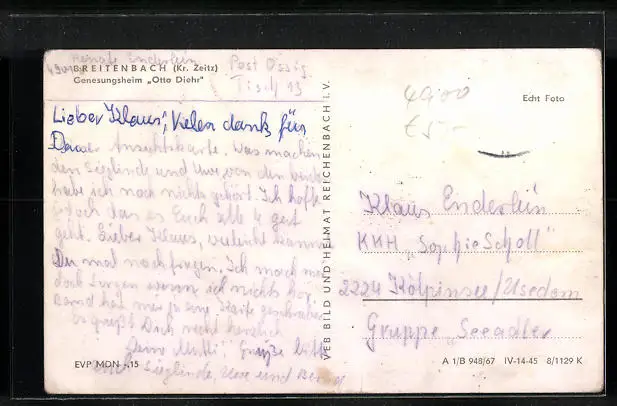 Renate Enderlein
4901
BREITENBACH (Kr. Zeitz)
Genesungsheim „Otto Diehr"
Post Ossig
Tisch 93
Lieber Klaus, vielen dank für
Ansichtskarte. Was machen
denn Sieglinde und Uwe von den beiden
habe ich noch nichts gehört. Ich hoffe
jedoch das es Euch alle 4 gut
geht. Lieber Klaus, vieleicht kannst
Du mal nachfragen. Ich mach mir
doch Sorgen wenn ich nichts hör.
Bernd hat mir ja eine Karte geschrieben
Es grüßt Dich recht herzlich
Deine Mutti. Grüße bitte
Sieglinde, Uwe und Bernd
EVP MDN -,15
VEB BILD UND HEIMAT REICHENBACH i. V.
4900
£5-
Echt Foto
Klaus Enderlein
KKH „Sophie Scholl"
2224 Kölpinsee/Usedom
Gruppe „Seeadler
A 1/B 948/67 IV-14-45 8/1129 K